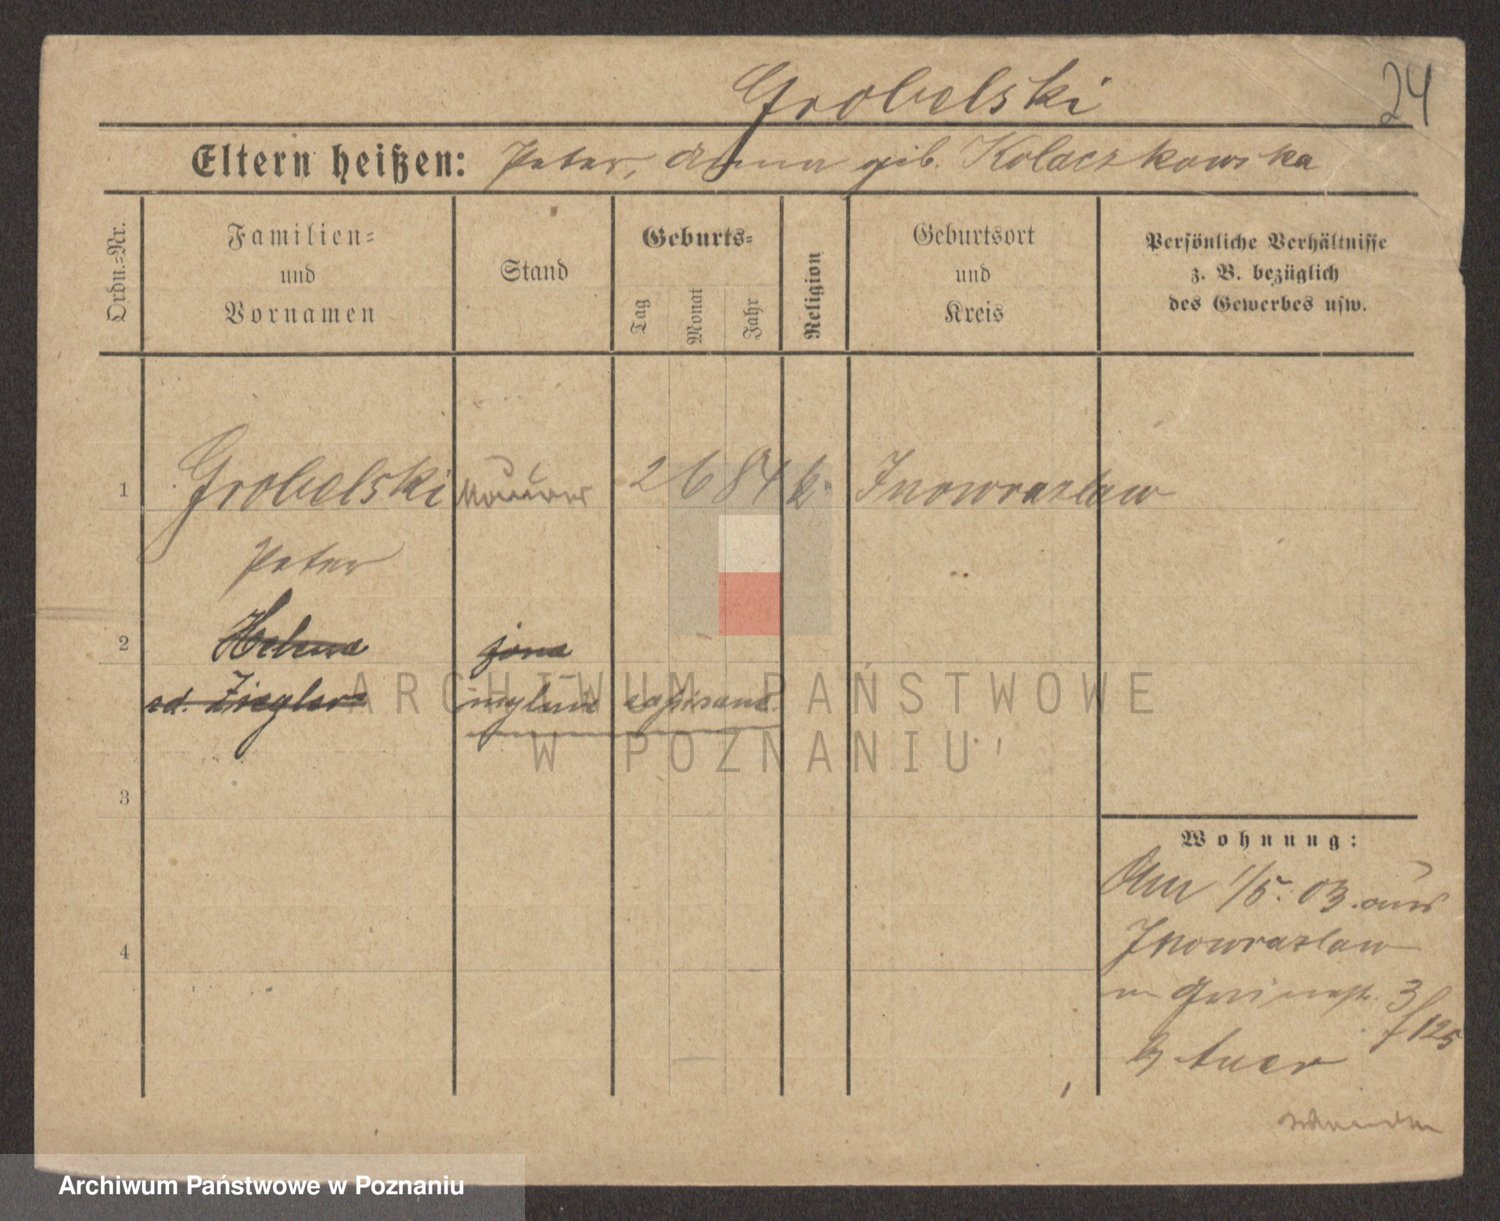 Grobelski
24
Eltern heißen: Peter, Anna geb. Kolaczkowska
Ordn.-Nr.
Familien-
und
Vornamen
Stand
Geburts-
Tag
Monat
Jahr
Religion
Geburtsort
und
Kreis
Persönliche Verhältnisse
z. B. bezüglich
des Gewerbes usw.
1 Grobelski Maurer 2 6 84 k. Inowrazlaw
Peter
2 Helena żona
Ziegler mylnie zapisana
3
4
Wohnung:
Am 1/5. 03. aus
Inowrazlaw
3/125
b/ Auer
ARCHIWUM PAŃSTWOWE
W POZNANIU
Archiwum Państwowe w Poznaniu